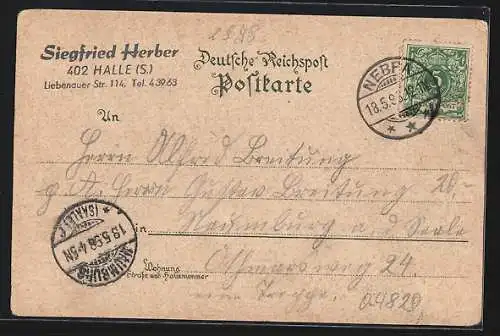 2898
Siegfried Herber
402 HALLE (S.)
Liebenauer Str. 114, Tel. 43963
Deutsche Reichspost
Postkarte
NEBRA
18.5.98
An
Herrn Alfred Breitung
p. A. Herrn Gustav Breitung 20,-
in Naumburg a. d. Saale
Wohnung
(Straße und Hausnummer)
Othmarsweg 24.
eine Treppe. 04829
NAUMBURG
18.5.98. 4-5N
(SAALE)